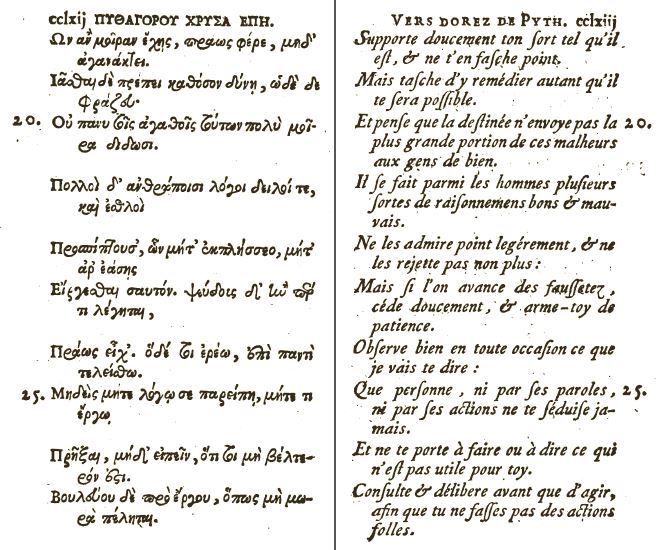 cclxij ΠΥΘΑΓΟΡΟΥ ΧΡΥΣΑ ΕΠΗ.
Ὧν ἂν μοῖραν ἔχῃς, πράως φέρε, μηδ'
ἀγανάκτει.
Ἰᾶσθαι δὲ πρέπει καθόσον δύνῃ, ὧδε δὲ
φράζου·
20. Οὐ πάνυ τοῖς ἀγαθοῖς τούτων πολὺ μοῖ-
ρα δίδωσι.
Πολλοὶ δ' ἀνθρώποισι λόγοι δειλοί τε,
καὶ ἐσθλοὶ
Προσπίπτουσ', ὧν μήτ' ἐκπλήσσεο, μήτ'
ἀρ' ἐάσῃς
Εἴργεσθαι σαυτόν. ψεῦδος δ' ἤν πέρ
τι λέγηται,
Πράως εἶχ'. ὃ δέ τοι ἐρέω, ἐπὶ παντὶ
τελείσθω.
25. Μηδεὶς μήτε λόγῳ σε παρείπῃ, μήτε τι
ἔργῳ
Πρῆξαι, μήδ' εἰπεῖν, ὅτι τοι μὴ βέλτε-
ρόν ἐστι.
Βουλεύου δὲ πρὸ ἔργου, ὅπως μὴ μω-
ρὰ πέληται.
VERS DOREZ DE PYTH. cclxiij
Supporte doucement ton sort tel qu'il
est, & ne t'en fasche point.
Mais tasche d'y remédier autant qu'il
te sera possible.
Et pense que la destinée n'envoye pas la 20.
plus grande portion de ces malheurs
aux gens de bien.
Il se fait parmi les hommes plusieurs
sortes de raisonnemens bons & mau-
vais.
Ne les admire point legérement, & ne
les rejette pas non plus :
Mais si l'on avance des faussetez,
céde doucement, & arme-toy de
patience.
Observe bien en toute occasion ce que
je vais te dire :
Que personne, ni par ses paroles, 25.
ni par ses actions ne te séduise ja-
mais.
Et ne te porte à faire ou à dire ce qui
n'est pas utile pour toy.
Consulte & délibere avant que d'agir,
afin que tu ne fasses pas des actions
folles.